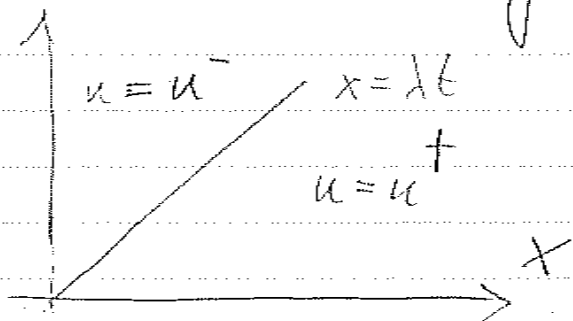 u ≡ u⁻ x = λt
u = u⁺
x